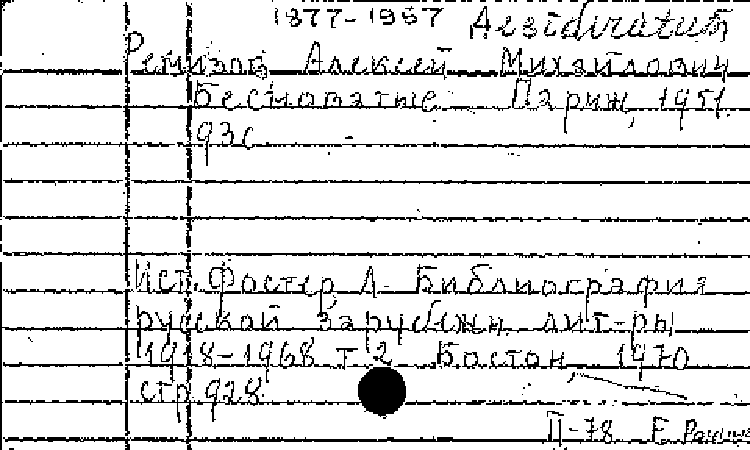 1877-1957 Aesideratus
Ремизов Алексей Михайлович
Бесноватые Париж, 1951
93с
Ист. Фостер, Л. Библиография
русской зарубежн. лит-ры
1918-1968 т 2 Бостон, 1970
стр. 928
II-78 Е.